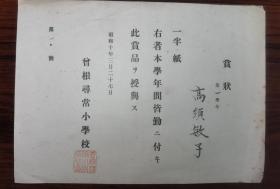 賞状
第一學年
高須敏子
一 半紙
右者本學年間皆勤ニ付キ
此賞品ヲ授與ス
昭和十年三月二十七日
曾根尋常小學校